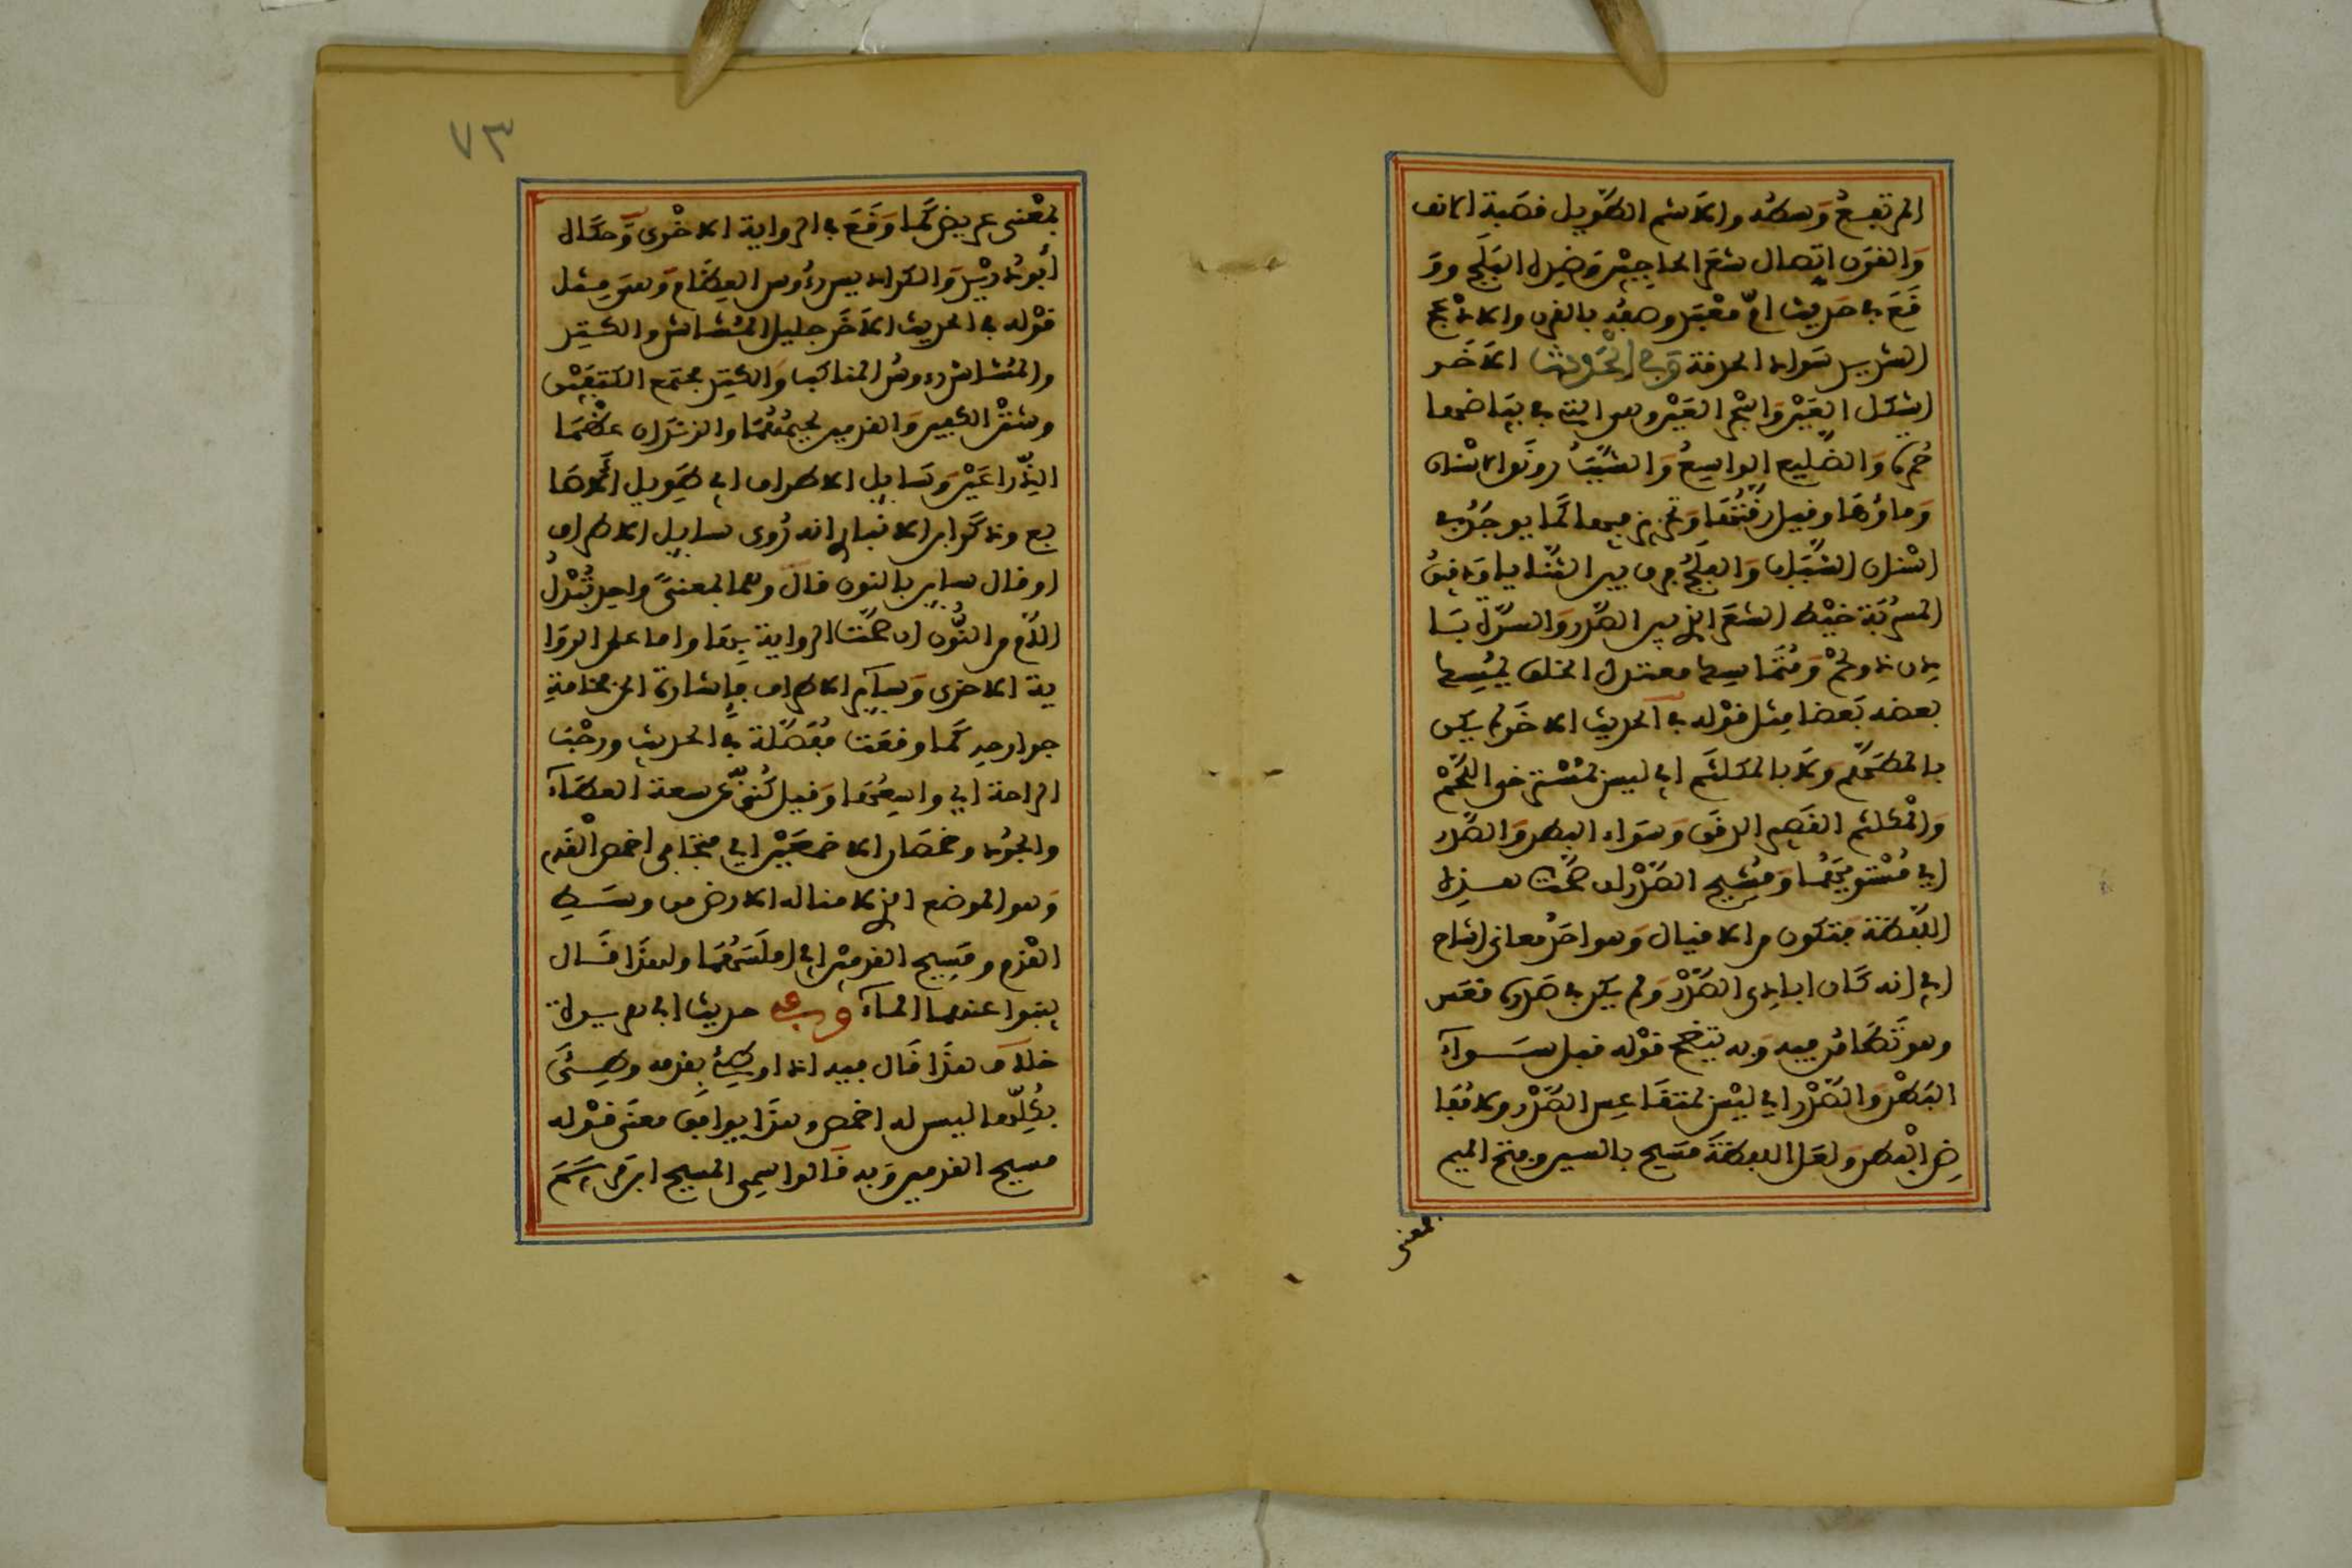 المرتفع وسطه والاشم الطويل قصبة الانف
والقرن اتصال شعر الحاجبين وضده البلج وو
قع في حديث ام معبد وصفه بالقرن والادعج
الشديد سواد الحدقة وفي الحديث الاخر
اشكل العين واسجر العين وهو الذي في بياضها
حمرة والضليع الواسع والشنب رونق الاسنان
وماؤها وقيل رقتها وتحزيز فيها كما يوجد في
اسنان الشباب والفلج فرق بين الثنايا ودقيق
المسربة خيط الشعر الذي بين الصدر والسرة با
دن ذو لحم ومتماسك معتدل الخلق يمسك
بعضه بعضا مثل قوله في الحديث الاخر لم يكن
بالمطهم ولا بالمكلثم اي ليس بمسترخي اللحم
والمكلثم القصير الذقن وسواء البطن والصدر
اي مستويهما ومشيح الصدر ان صحت هذه
اللفظة فتكون من الاقبال وهو احد معاني اشاح
اي انه كان بادي الصدر ولم يكن في صدره قعس
وهو تطامن فيه وبه يتضح قوله قبل سواء
البطن والصدر اي ليس بمتقاعس الصدر ولا مفا
ض البطن ولعل اللفظة مسيح بالسين وفتح الميم
بمعنى
٧٣
بمعنى عريض كما وقع في الرواية الاخرى وحكاه
ابو دريد والكراديس رءوس العظام وهو مثل
قوله في الحديث الاخر جليل المشاش والكتد
والمشاش رءوس المناكب والكتد مجتمع الكتفين
وشثن الكفين والقدمين لحيمهما والزندان عظما
الذراعين وسايل الاطراف اي طويل الاصا
بع وذكر ابن الانباري انه روى سايل الاطراف
او قال ساين بالنون قال وهما بمعنى واحد تبدل
اللام من النون ان صحت الرواية بها واما على الروا
ية الاخرى وساير الاطراف فاشارة الى فخامة
جوارحه كما وقعت مفصلة في الحديث ورحب
الراحة اي واسعها وقيل كنى عن سعة العطاء
والجود وخمصان الاخمصين اي متجافي اخمص القدم
وهو الموضع الذي لا تناله الارض من وسط
القدم ومسيح القدمين اي املسهما ولهذا قال
ينبوا عنهما الماء وفي حديث ابي هريرة
خلاف هذا قال فيه اذا وطئ بقدمه وطئ
بكلها ليس له اخمص وهذا يوافق معنى قوله
مسيح القدمين وبه قالوا سمي المسيح ابن مريم